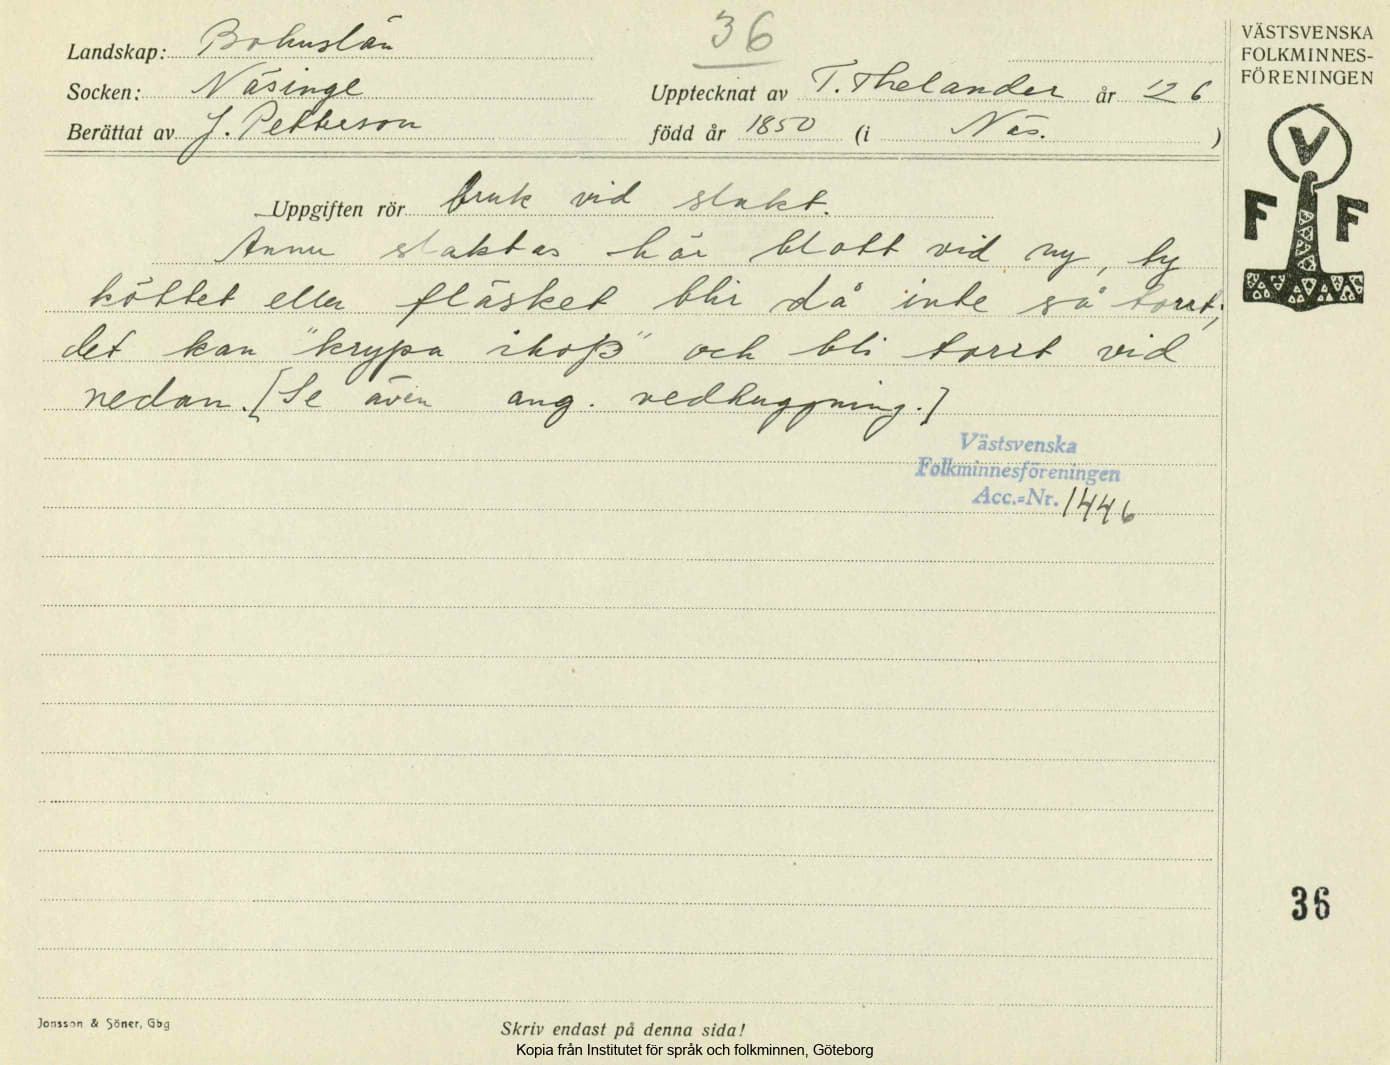 36
Landskap: Bohuslän
Socken: Näsinge
Upptecknat av T. Thelander år 1926
Berättat av J. Petterson född år 1850 (i Näs. )
VÄSTSVENSKA
FOLKMINNES-
FÖRENINGEN
V
F F
Uppgiften rör bruk vid slakt.
Ännu slaktas här blott vid ny, ty
köttet eller fläsket blir då inte så torrt;
det kan "krypa ihop" och bli torrt vid
nedan. [Se även ang. vedhuggning.]
Västsvenska
Folkminnesföreningen
Acc.=Nr. 1446
36
Jonsson & Söner, Gbg
Skriv endast på denna sida!
Kopia från Institutet för språk och folkminnen, Göteborg